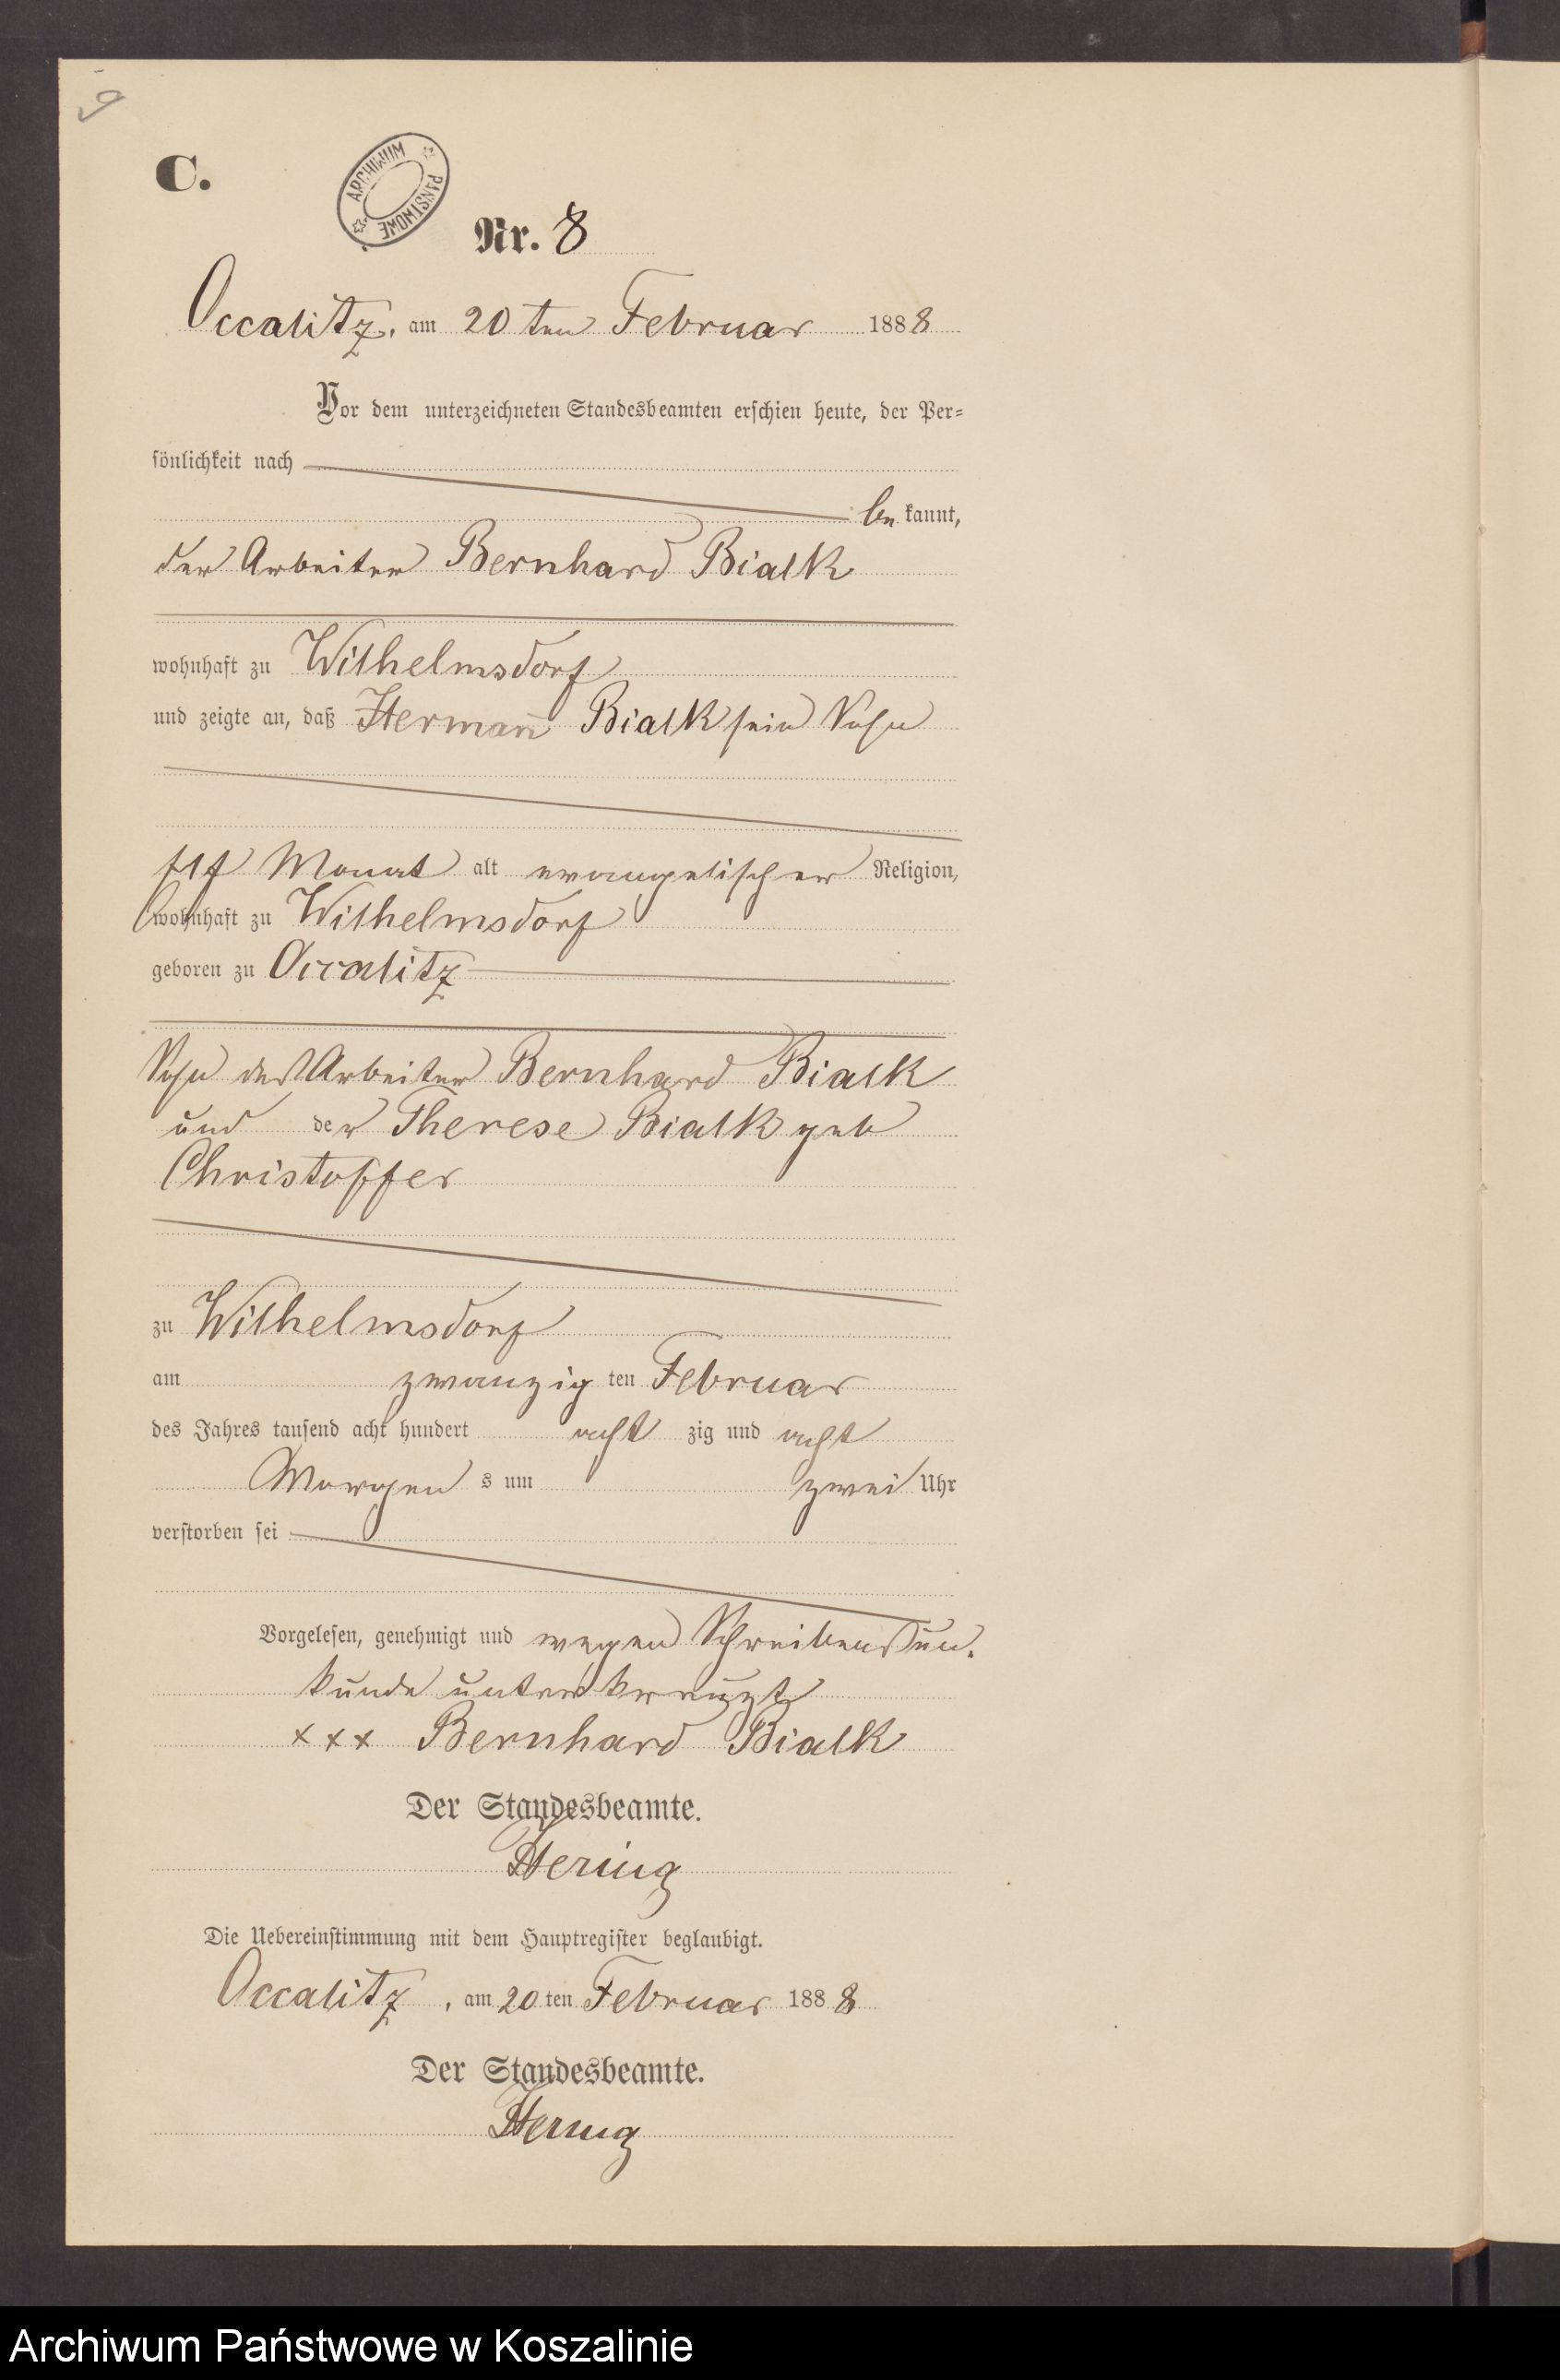 C.
ARCHIWUM PAŃSTWOWE
Nr. 8
Occalitz, am 20 ten Februar 1888
Vor dem unterzeichneten Standesbeamten erschien heute, der Per=
sönlichkeit nach
be kannt,
der Arbeiter Bernhard Bialk
wohnhaft zu Wilhelmsdorf
und zeigte an, daß Hermañ Bialk sein Sohn
elf Monat alt evangelischer Religion,
wohnhaft zu Wilhelmsdorf
geboren zu Occalitz
Sohn des Arbeiter Bernhard Bialk
und der Therese Bialk geb
Christoffer
zu Wilhelmsdorf
am zwanzig ten Februar
des Jahres tausend acht hundert acht zig und acht
Morgen s um zwei Uhr
verstorben sei
Vorgelesen, genehmigt und wegen Schreibensun-
kunde unterkreuzt
xxx Bernhard Bialk
Der Standesbeamte.
Hering
Die Uebereinstimmung mit dem Hauptregister beglaubigt.
Occalitz, am 20 ten Februar 1888
Der Standesbeamte.
Hering
Archiwum Państwowe w Koszalinie